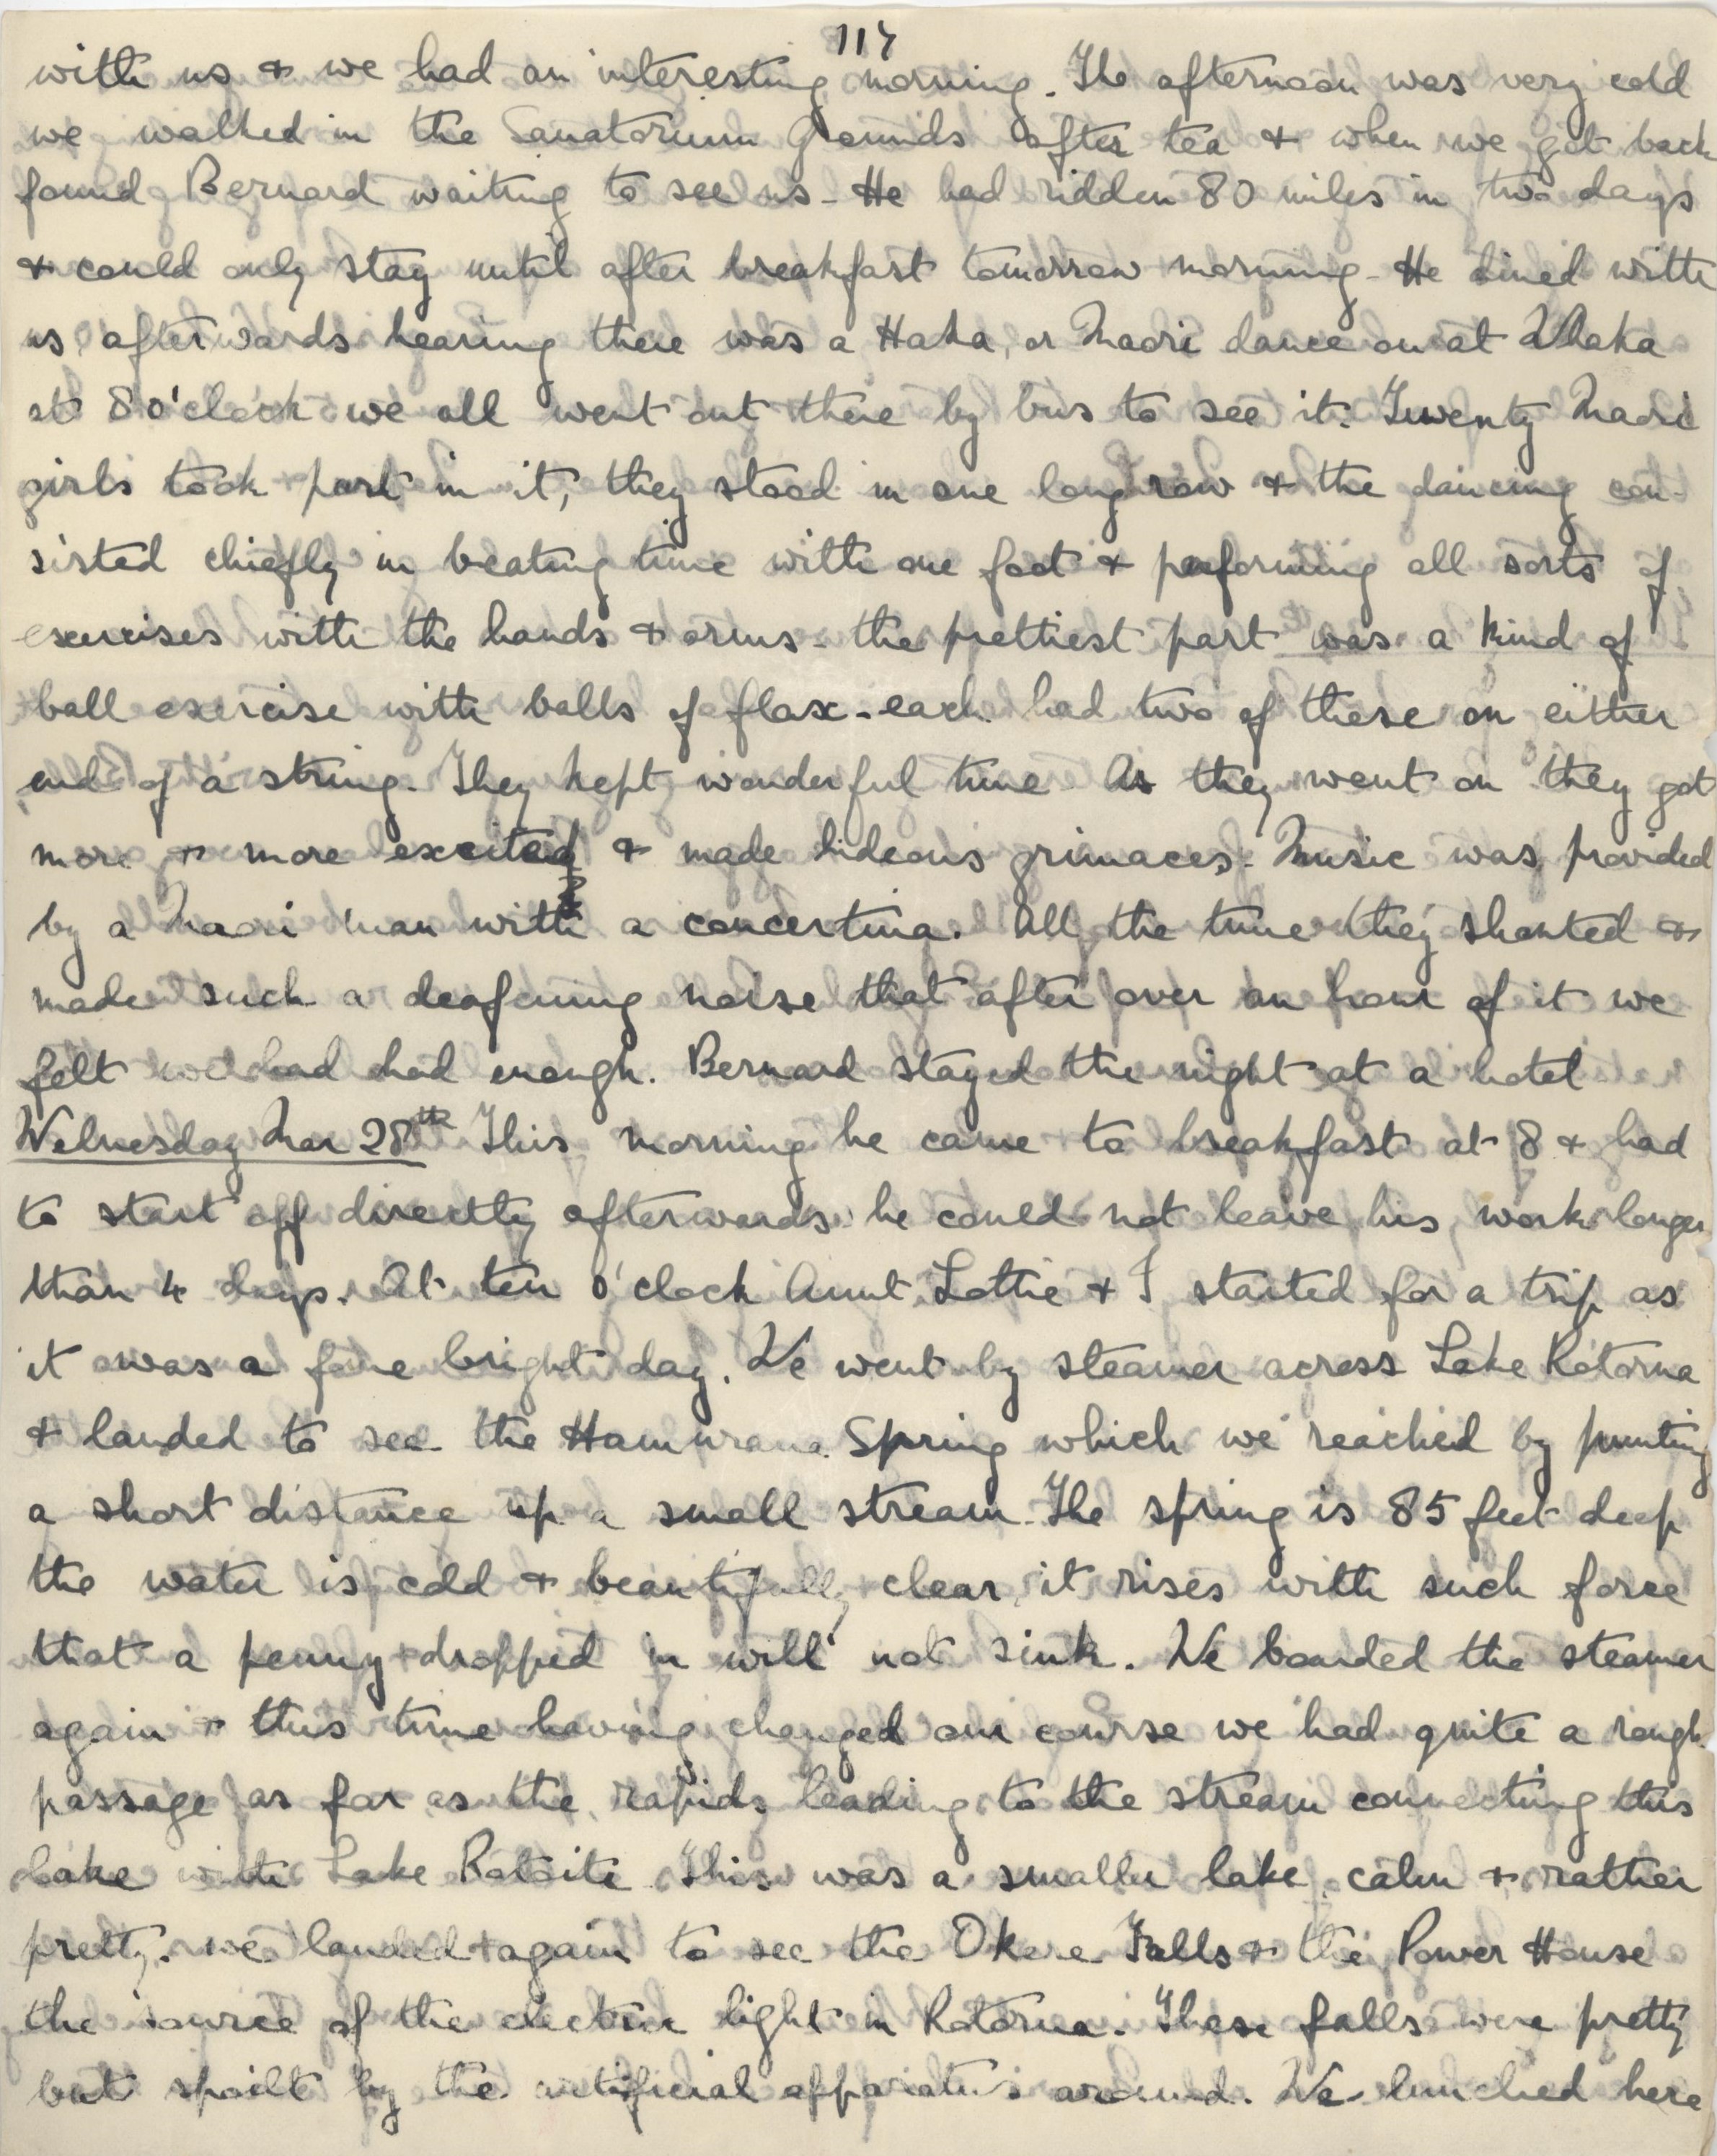 117
with us & we had an interesting morning. The afternoon was very cold
we walked in the Sanatorium Grounds after tea & when we got back
found Bernard waiting to see us - He had ridden 80 miles in two days
& could only stay until after breakfast tomorrow morning - He dined with
us, afterwards hearing there was a Haka, or Maori dance on at Whaka
at 8 o'clock we all went out there by bus to see it. Twenty Maori
girls took part in it, they stood in one long row & the dancing con-
sisted chiefly in beating time with one foot & performing all sorts of
exercises with the hands & arms - the prettiest part was a kind of
ball exercise with balls of flax - each had two of these on either
end of a string. They kept wonderful time As they went on they got
more & more excited & made hideous grimaces - Music was provided
by a Maori man with a concertina. All the time they shouted &
made such a deafening noise that after over an hour of it we
felt we had had enough. Bernard stayed the night at a hotel
Wednesday Mar 28th This morning he came to breakfast at 8 & had
to start off directly afterwards he could not leave his work longer
than 4 days. At ten o'clock Aunt Lottie & I started for a trip as
it was a fine bright day. We went by steamer across Lake Rotorua
& landed to see the Hamurana Spring which we reached by punting
a short distance up a small stream. The spring is 85 feet deep
the water is cold & beautifully clear, it rises with such force
that a penny dropped in will not sink. We boarded the steamer
again & this time having changed our course we had quite a rough
passage as far as the rapids leading to the stream connecting this
lake with Lake Rotoite This was a smaller lake calm & rather
pretty. we landed again to see the Okere Falls & the Power House
the source of the electric light in Rotorua. These falls were pretty
but spoilt by the artificial apparatus around. We lunched here